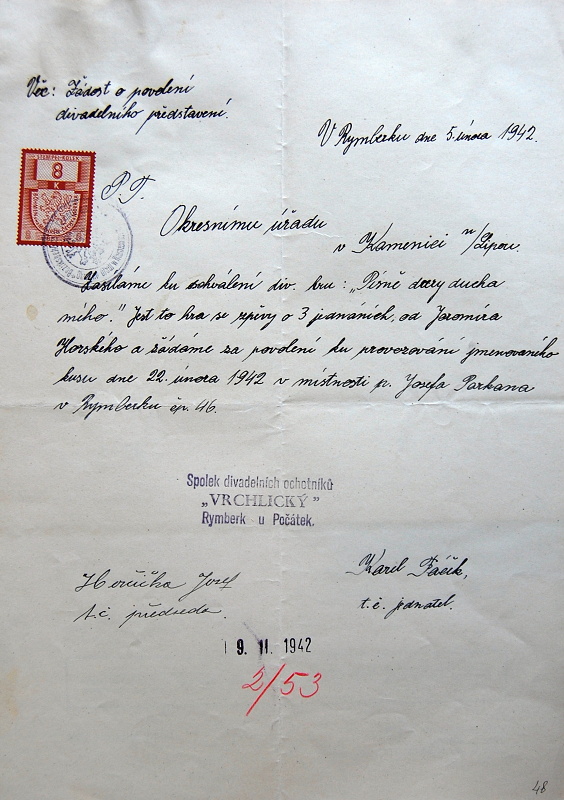 Věc: Žádost o povolení
divadelního představení.
V Rymberku dne 5. února 1942.
STEMPEL-KOLEK
8
K
P.T.
Okresnímu úřadu
v Kamenici n/Lipou
Zasíláme ku schválení div. hru: „Písně dcery ducha
mého." Jest to hra se zpěvy o 3 jednáních, od Jaromíra
Horského a žádáme za povolení ku provozování jmenovaného
kusu dne 22. února 1942 v místnosti p. Josefa Parkana
v Rymberku čp. 46.
Spolek divadelních ochotníků
„VRCHLICKÝ"
Rymberk u Počátek.
Josef
t.č. předseda.
Karel
t.č. jednatel.
9. II. 1942
2/53
48